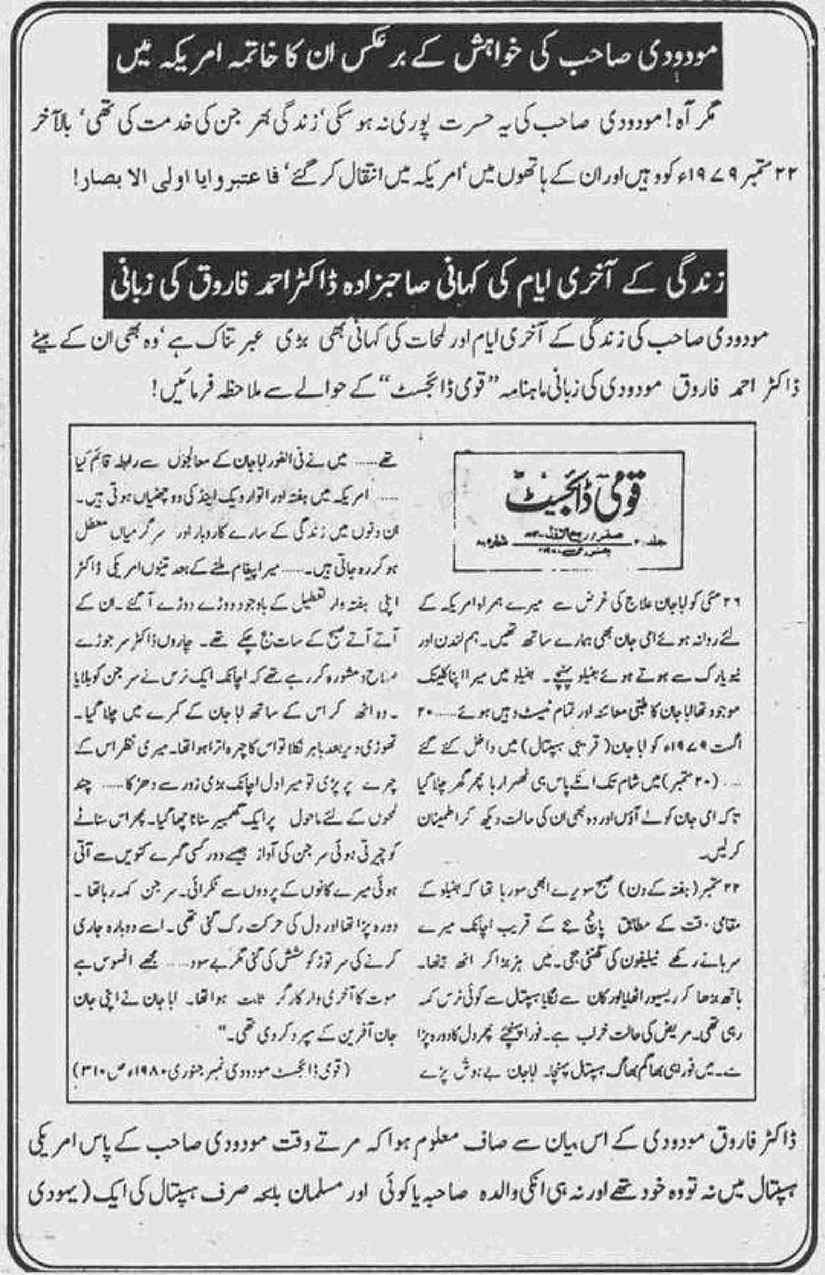 مودودی صاحب کی خواہش کے برعکس ان کا خاتمہ امریکہ میں
مگر آہ! مودودی صاحب کی یہ حسرت پوری نہ ہو سکی‘ زندگی بھر جن کی خدمت کی تھی‘ بالآخر
۲۲ ستمبر ۱۹۷۹ء کو وہیں اور ان کے ہاتھوں میں‘ امریکہ میں انتقال کر گئے‘ فاعتبروا یا اولی الابصار!
زندگی کے آخری ایام کی کہانی صاحبزادہ ڈاکٹر احمد فاروق کی زبانی
مودودی صاحب کی زندگی کے آخری ایام اور لمحات کی کہانی بھی بڑی عبرتناک ہے‘ وہ بھی ان کے بیٹے
ڈاکٹر احمد فاروق مودودی کی زبانی ماہنامہ “قومی ڈائجسٹ” کے حوالے سے ملاحظہ فرمائیں!
قومی ڈائجسٹ
۲۶ مئی کو ابا جان علاج کی غرض سے میرے ہمراہ امریکہ کے
لئے روانہ ہوئے امی جان بھی ہمارے ساتھ تھیں۔ ہم لندن اور
نیویارک سے ہوتے ہوئے بفیلو پہنچے۔ بفیلو میں میرا اپنا کلینک
موجود تھا ابا جان کا طبی معائنہ اور تمام ٹیسٹ وہیں ہوئے ..... ۲۰
اگست ۱۹۷۹ء کو ابا جان (قریبی ہسپتال) میں داخل کئے گئے
.... (۲۰ ستمبر) میں شام تک انکے پاس ہی ٹھہرا رہا پھر گھر چلا گیا
تاکہ امی جان کو لے آؤں اور وہ بھی ان کی حالت دیکھ کر اطمینان
کرلیں۔
۲۲ ستمبر (ہفتہ کے دن) صبح سویرے ابھی سو رہا تھا کہ بفیلو کے
مقامی وقت کے مطابق پانچ بجے کے قریب اچانک میرے
سرہانے رکھے ٹیلیفون کی گھنٹی بجی۔ میں ہڑبڑا کر اٹھ بیٹھا۔
ہاتھ بڑھا کر ریسیور اٹھایا اور کان سے لگایا ہسپتال سے کوئی نرس کہہ
رہی تھی۔ مریض کی حالت خراب ہے۔ فوراً پہنچئے پھر دل کا دورہ پڑا
ہے۔ میں فوراً ہی بھاگم بھاگ ہسپتال پہنچا۔ ابا جان بے ہوش پڑے
تھے ..... میں نے فی الفور ابا جان کے معالجوں سے رابطہ قائم کیا
.... امریکہ میں ہفتہ اور اتوار ویک اینڈ کی دو چھٹیاں ہوتی ہیں۔
ان دنوں میں زندگی کے سارے کاروبار اور سرگرمیاں معطل
ہو کر رہ جاتی ہیں ..... میرا پیغام ملنے کے بعد تینوں امریکی ڈاکٹر
اپنی ہفتہ وار تعطیل کے باوجود دوڑے دوڑے آ گئے۔ ان کے
آتے آتے صبح کے سات بج چکے تھے۔ چاروں ڈاکٹر سر جوڑے
صلاح و مشورہ کر رہے تھے کہ اچانک ایک نرس نے سرجن کو بلایا
۔ وہ اٹھ کر اس کے ساتھ ابا جان کے کمرے میں چلا گیا۔
تھوڑی دیر بعد باہر نکلا تو اس کا چہرہ اترا ہوا تھا۔ میری نظر اس کے
چہرے پر پڑی تو میرا دل اچانک بڑی زور سے دھڑکا ..... چند
لمحوں کے لئے ماحول پر ایک گھمبیر سناٹا چھا گیا۔ پھر اس سناٹے
کو چیرتی ہوئی سرجن کی آواز جیسے دور کسی گہرے کنویں سے آتی
ہوئی میرے کانوں کے پردوں سے ٹکرائی۔ سرجن کہہ رہا تھا۔
دورہ پڑا تھا اور دل کی حرکت رک گئی تھی۔ اسے دوبارہ جاری
کرنے کی سر توڑ کوشش کی گئی مگر بے سود ..... مجھے افسوس ہے
موت کا آخری وار کارگر ثابت ہوا تھا۔ ابا جان نے اپنی جان
جان آفرین کے سپرد کر دی تھی۔”
(قومی ڈائجسٹ مودودی نمبر جنوری ۱۹۸۰ء ص ۳۱۰)
ڈاکٹر فاروق مودودی کے اس بیان سے صاف معلوم ہوا کہ مرتے وقت مودودی صاحب کے پاس امریکی
ہسپتال میں نہ تو وہ خود تھے اور نہ ہی انکی والدہ صاحبہ یا کوئی اور مسلمان بلکہ صرف ہسپتال کی ایک (یہودی